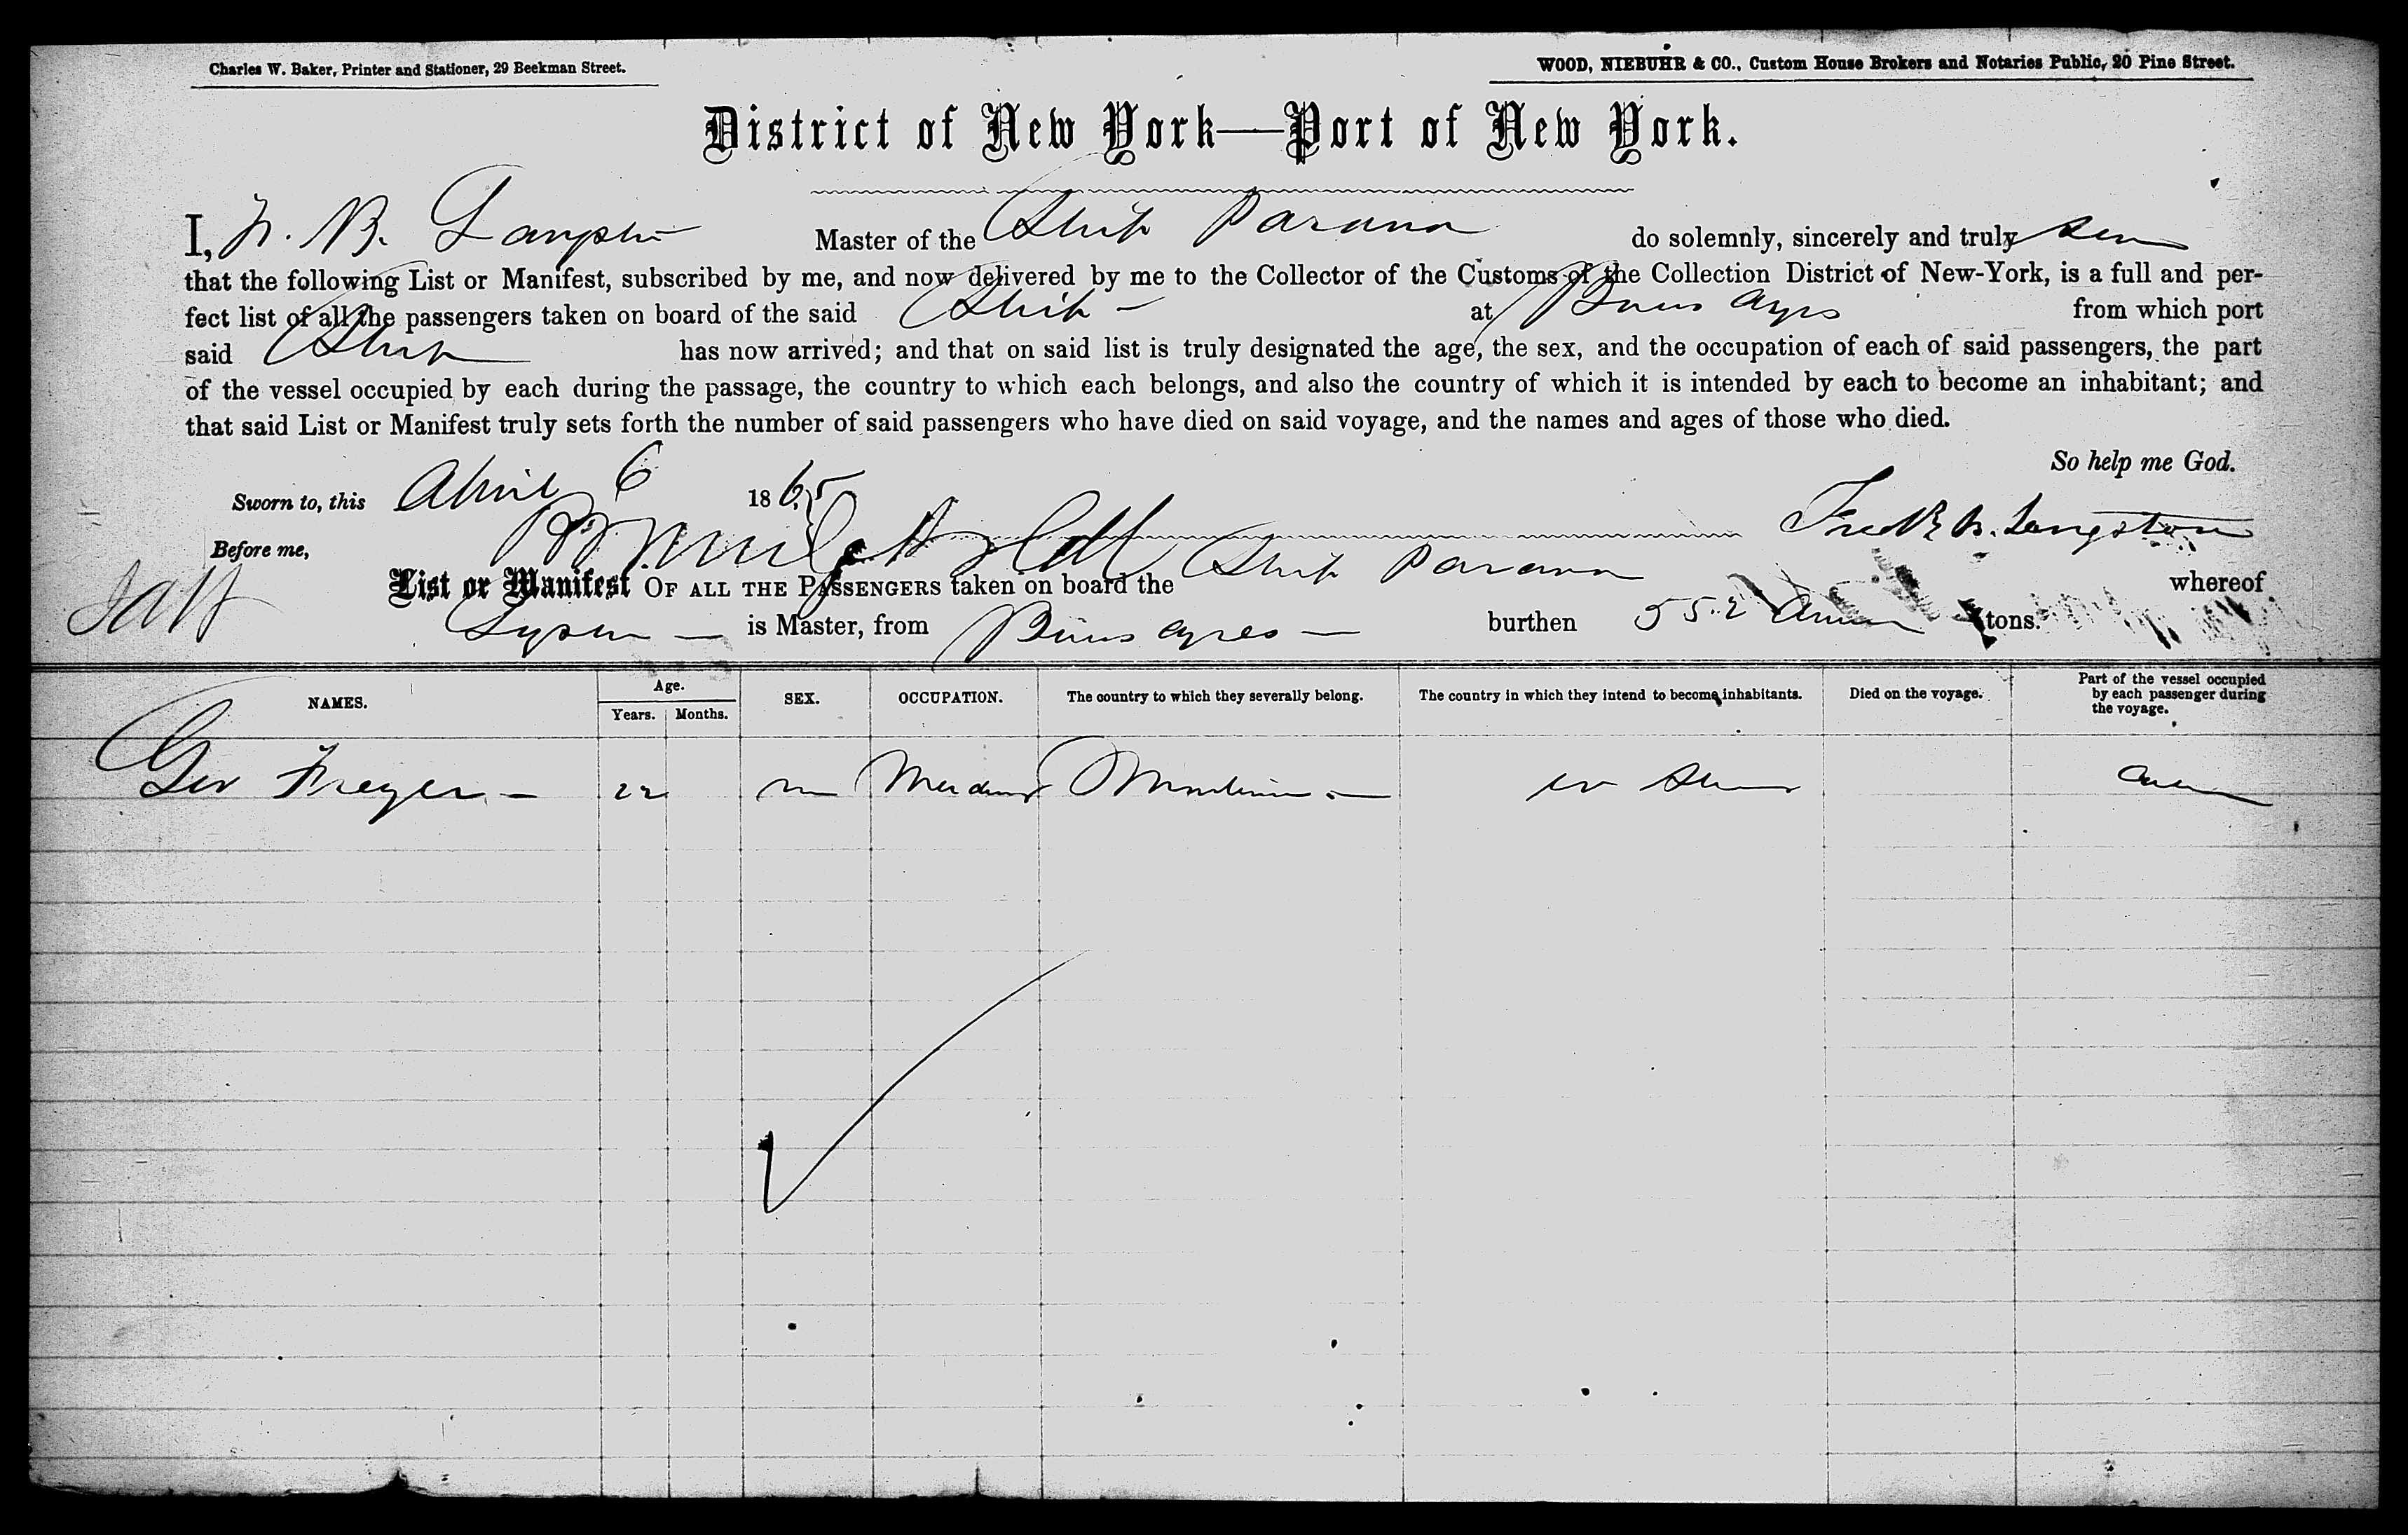 Charles W. Baker, Printer and Stationer, 29 Beekman Street.
WOOD, NIEBUHR & CO., Custom House Brokers and Notaries Public, 20 Pine Street.
District of New York—Port of New York.
I, Master of the Ship Parana do solemnly, sincerely and truly
that the following List or Manifest, subscribed by me, and now delivered by me to the Collector of the Customs of the Collection District of New-York, is a full and per-
fect list of all the passengers taken on board of the said Ship – at Ayres from which port
said Ship has now arrived; and that on said list is truly designated the age, the sex, and the occupation of each of said passengers, the part
of the vessel occupied by each during the passage, the country to which each belongs, and also the country of which it is intended by each to become an inhabitant; and
that said List or Manifest truly sets forth the number of said passengers who have died on said voyage, and the names and ages of those who died.
So help me God.
Sworn to, this April 6 1865
Before me,
List or Manifest OF ALL THE PASSENGERS taken on board the Ship Parana whereof
is Master, from Ayres – burthen 552 tons.
NAMES. Age. Years. Months. SEX. OCCUPATION. The country to which they severally belong. The country in which they intend to become inhabitants. Died on the voyage. Part of the vessel occupied by each passenger during the voyage.
Geo Freyer – 22 m